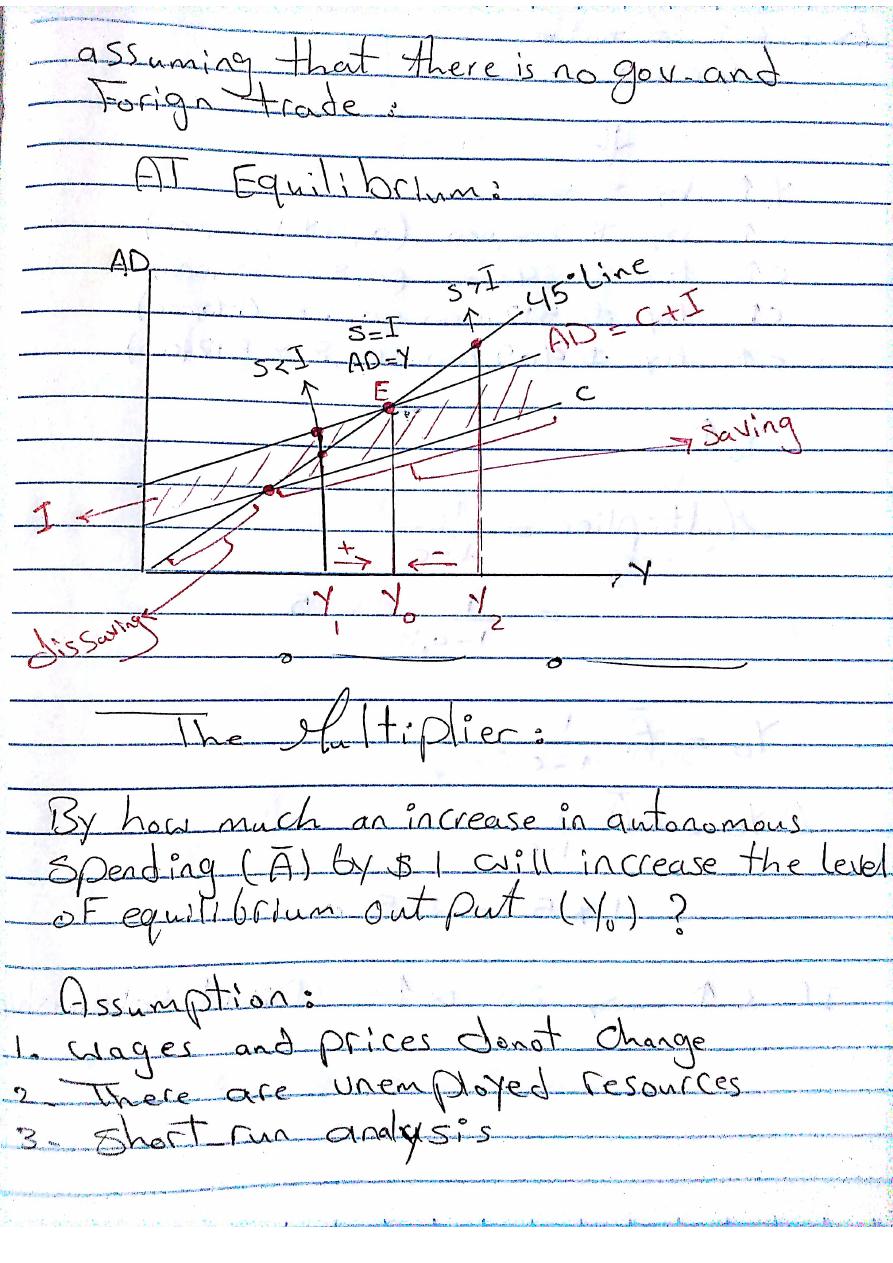 assuming that there is no gov. and
Forign trade:
AT Equilibrium:
AD
S>I
45° Line
S=I
AD = C+I
S<I
AD=Y
E
C
Saving
I
+
-
Y
Y1
Y0
Y2
dissaving
The Multiplier:
By how much an increase in autonomous
Spending (Ā) by $ 1 will increase the level
oF equilibrium out put (Y0) ?
Assumption:
1. wages and prices donot change
2. There are unemployed resources
3- short-run analysis